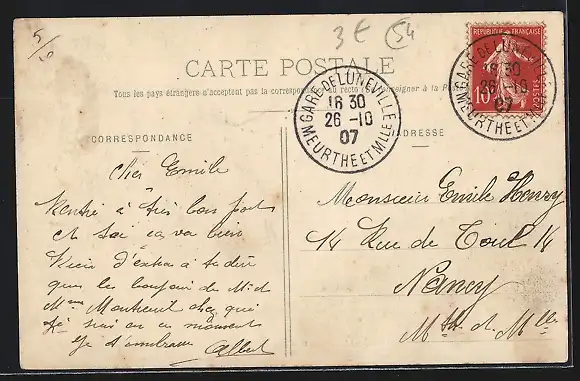 5/10
3 E 54
CARTE POSTALE
Tous les pays étrangers n'acceptent pas la correspondance au recto (se renseigner à la Poste
CORRESPONDANCE
ADRESSE
GARE DE LUNEVILLE
18 30
26 -10
07
MEURTHE ET MLLE
RÉPUBLIQUE FRANÇAISE
10
POSTES
GARE DE LUNEVILLE
30
26 -10
07
MEURTHE ET MLLE
Cher Emile
Rentré à très bon port
et toi ça va bien
Rien d'extra à te dire
que les bonjour de M. &
Mme Montreuil chez qui
je suis en ce moment
Je t'embrasse Albert
Monsieur Emile Henry
14 Rue de Toul 14
Nancy
Mthe et Mlle